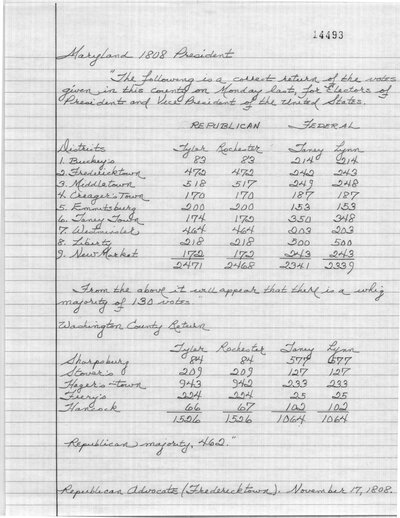 14493
Maryland 1808 President
"The following is a correct return of the votes
given in this county on Monday last, for Electors of
President and Vice President of the United States.
REPUBLICAN FEDERAL
Districts Tyler Rochester Taney Lynn
1. Buckey's 83 83 214 214
2. Fredericktown 472 472 242 243
3. Middletown 518 517 249 248
4. Creager's Town 170 170 187 187
5. Emmitsburg 200 200 153 153
6. Taney Town 174 172 350 348
7. Westminster 464 464 203 203
8. Liberty 218 218 500 500
9. New Market 172 172 243 243
2471 2468 2341 2339
From the above it will appear that there is a whig
majority of 130 votes."
Washington County Return
Tyler Rochester Taney Lynn
Sharpsburg 84 84 577 577
Stover's 209 209 127 127
Hager's-town 943 942 233 233
Fiery's 224 224 25 25
Hancock 66 67 102 102
1526 1526 1064 1064
Republican majority, 462."
Republican Advocate (Fredericktown). November 17, 1808.